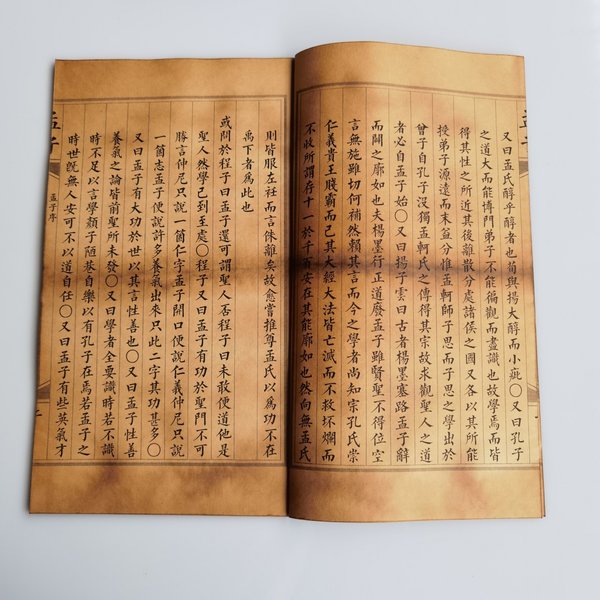 又曰孟氏醇乎醇者也荀與揚大醇而小疵〇又曰孔子
之道大而能博門弟子不能徧觀而盡識也故學焉而皆
得其性之所近其後離散分處諸侯之國又各以其所能
授弟子源遠而末益分惟孟軻師子思而子思之學出於
曾子自孔子沒獨孟軻氏之傳得其宗故求觀聖人之道
者必自孟子始〇又曰揚子雲曰古者楊墨塞路孟子辭
而闢之廓如也夫楊墨行正道廢孟子雖賢聖不得位空
言無施雖切何補然賴其言而今之學者尚知宗孔氏崇
仁義貴王賤霸而已其大經大法皆亡滅而不救坏爛而
不收所謂存十一於千百安在其能廓如也然向無孟氏
則皆服左衽而言侏離矣故愈嘗推尊孟氏以為功不在
禹下者為此也
或問於程子曰孟子還可謂聖人否程子曰未敢便道他是
聖人然學已到至處〇程子又曰孟子有功於聖門不可
勝言仲尼只說一箇仁字孟子開口便說仁義仲尼只說
一箇志孟子便說許多養氣出來只此二字其功甚多〇
又曰孟子有大功於世以其言性善也〇又曰孟子性善
養氣之論皆前聖所未發〇又曰學者全要識時若不識
時不足以言學顏子陋巷自樂以有孔子在焉若孟子之
時世既無人安可不以道自任〇又曰孟子有些英氣才
孟子序